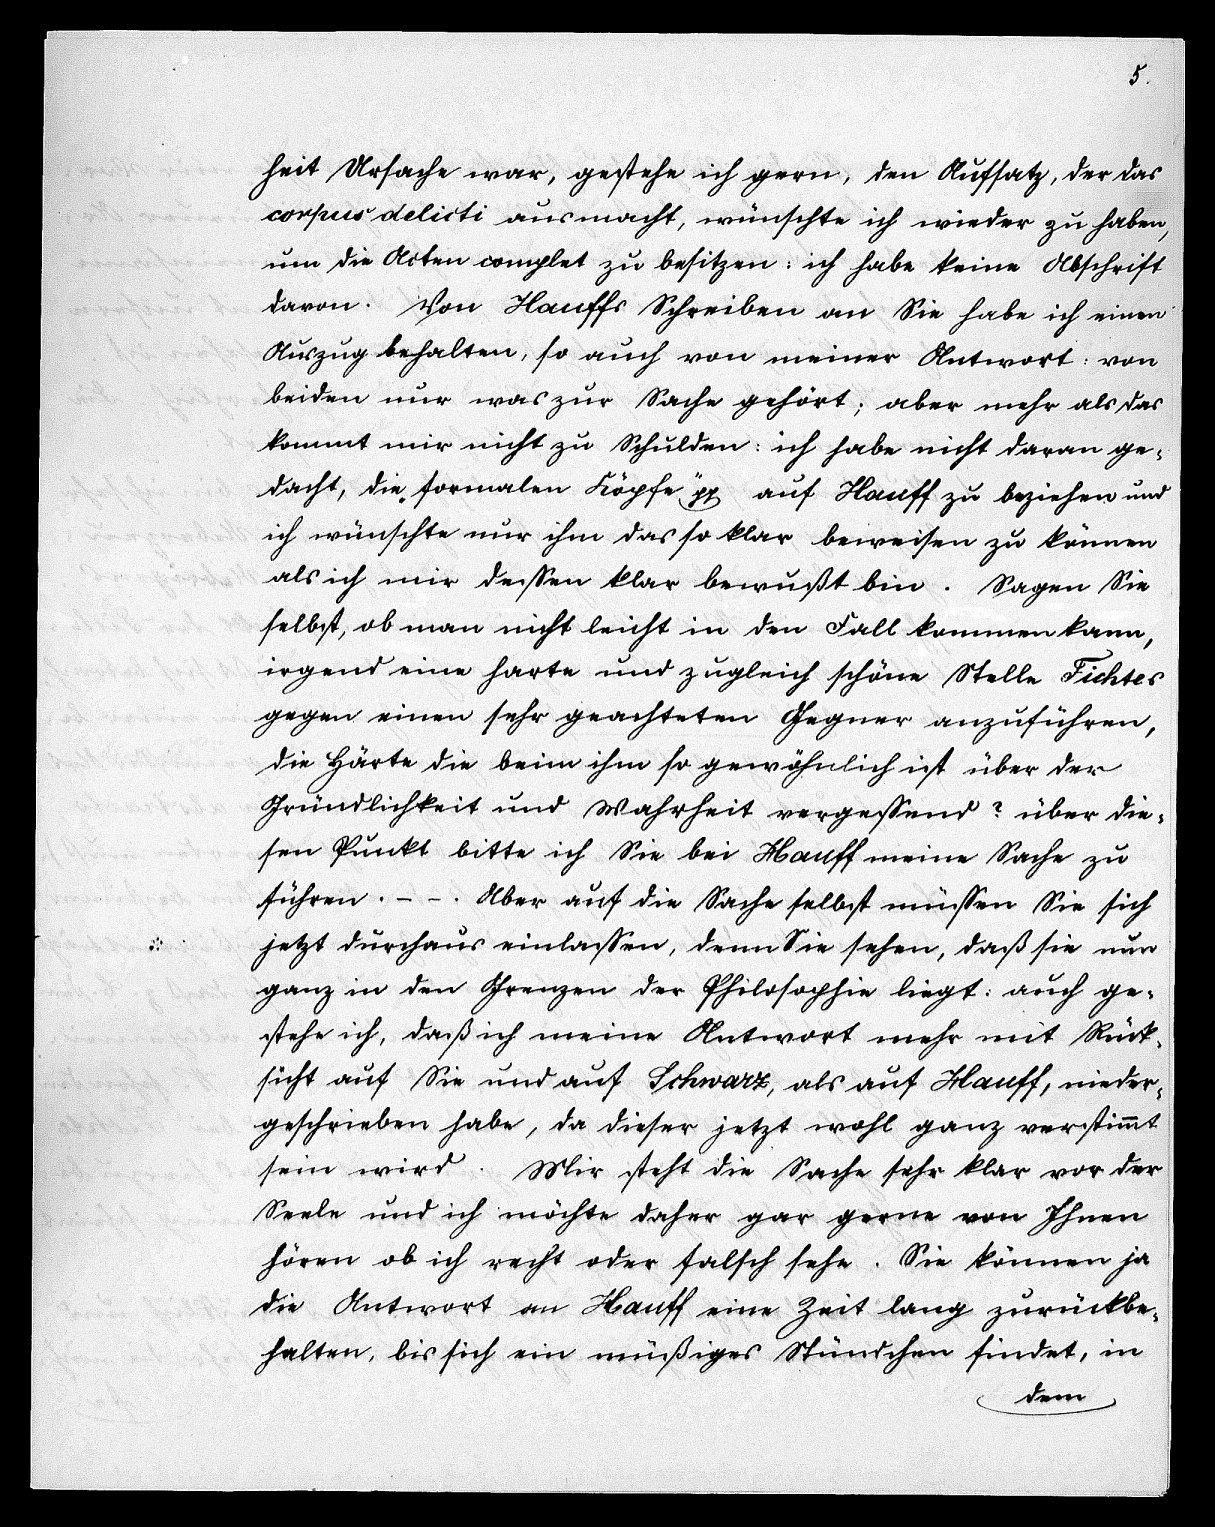 5.
heit Ursache war, gestehe ich gern, den Aufsatz, der das
corpus delicti ausmacht, wünschte ich wieder zu haben,
um die Acten complet zu besitzen: ich habe keine Abschrift
davon. Von Hauffs Schreiben an Sie habe ich einen
Auszug behalten, so auch von meiner Antwort: von
beiden nur was zur Sache gehört; aber mehr als das
kommt mir nicht zu Schulden: ich habe nicht daran ge-
dacht, die „formalen Köpfe“ pp auf Hauff zu beziehen und
ich wünschte nur ihm das so klar beweisen zu können
als ich mir dessen klar bewußt bin. Sagen Sie
selbst, ob man nicht leicht in den Fall kommen kann,
irgend eine harte und zugleich schöne Stelle Fichtes
gegen einen sehr geachteten Gegner anzuführen,
die Härte die beim ihm so gewöhnlich ist über der
Gründlichkeit und Wahrheit vergessend? über die-
sen Punkt bitte ich Sie bei Hauff meine Sache zu
führen. – –. Aber auf die Sache selbst müssen Sie sich
jetzt durchaus einlassen, denn Sie sehen, daß sie nun
ganz in den Grenzen der Philosophie liegt: auch ge-
stehe ich, daß ich meine Antwort mehr mit Rück-
sicht auf Sie und auf Schwarz, als auf Hauff, nieder-
geschrieben habe, da dieser jetzt wohl ganz verstim̄t
sein wird. Mir steht die Sache sehr klar vor der
Seele und ich möchte daher gar gerne von Ihnen
hören ob ich recht oder falsch sehe. Sie können ja
die Antwort an Hauff eine Zeit lang zurückbe-
halten, bis sich ein müßiges Stündchen findet, in
dem